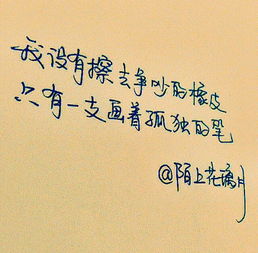 我没有擦去争吵的橡皮
只有一支画着孤独的笔
@陌上花满月